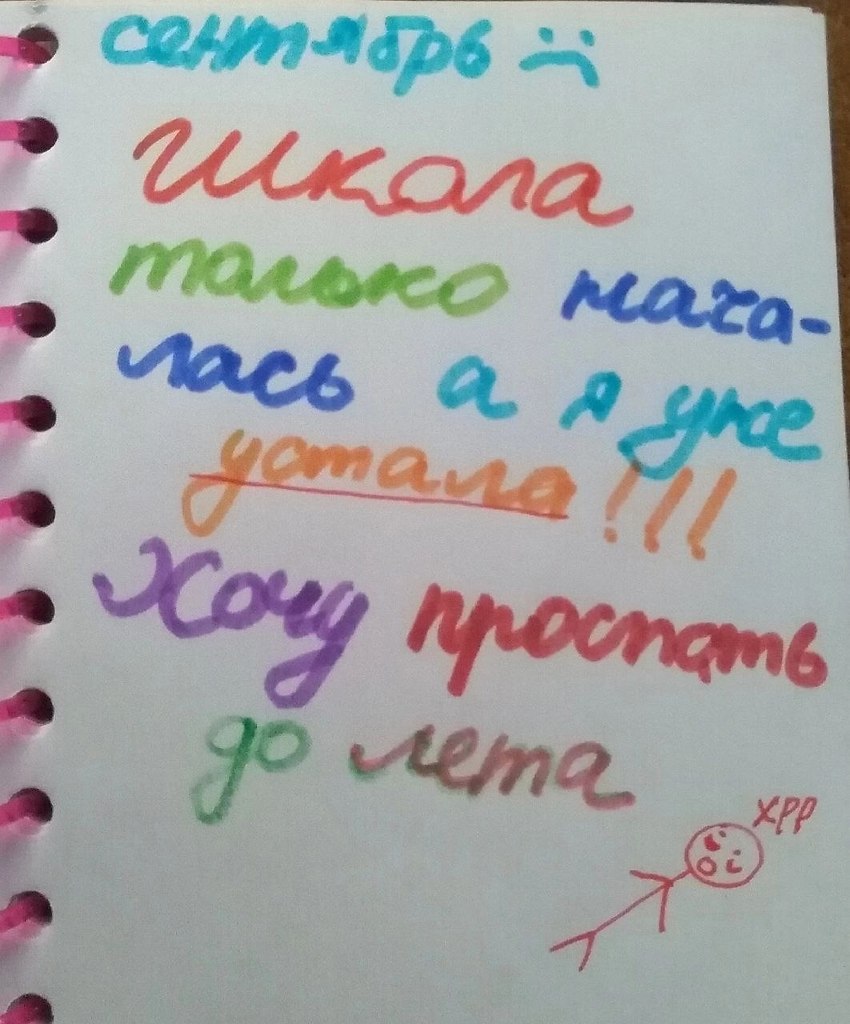 сентябрь :(
Школа
только нача-
лась а я уже
устала!!!
Хочу проспать
до лета
хрр